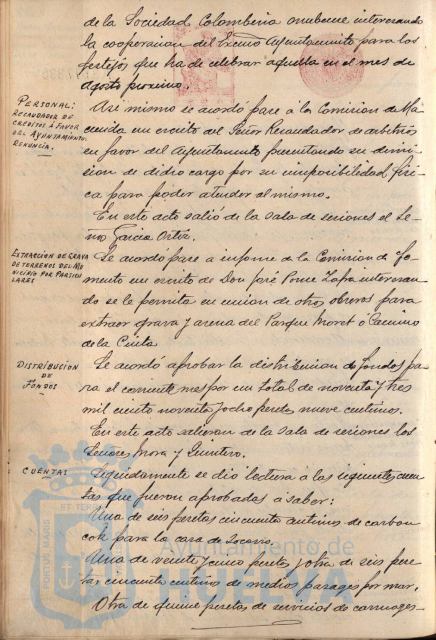 de la Sociedad Colombina onubense interesando
la cooperacion del Excmo Ayuntamiento para los
festejos que ha de celebrar aquella en el mes de
Agosto proximo.
PERSONAL:
RECAUDADOR DE
CREDITOS A FAVOR
DEL AYUNTAMIENTO,
RENUNCIA.
Asi mismo se acordó pase á la Comision de Ha-
cienda un escrito del Señor Recaudador de arbitrios
en favor del Ayuntamiento presentando su dimi-
sion de dicho cargo por su imposibilidad fisi-
ca para poder atender al mismo.
En este acto salió de la sala de sesiones el Se-
ñor Garcia Ortiz.
EXTRACCION DE GRAVA
DE TERRENOS DEL MU
NICIPIO POR PARTICU
LARES
Se acordó pase a informe de la Comision de Fo-
mento un escrito de Don José Ponce Zafra interesan-
do se le permita en union de otros obreros para
extraer grava y arena del Parque Moret ó Camino
de la Cinta.
DISTRIBUCION
DE
FONDOS
Se acordó aprobar la distribucion de fondos pa-
ra el corriente mes por un total de noventa y tres
mil ciento noventa y ocho pesetas, nueve centimos.
En este acto salieron de la sala de sesiones los
Señores Mora y Quintero.
CUENTAS
Seguidamente se dió lectura á las siguientes cuen-
tas que fueron aprobadas a saber:
Una de seis pesetas cincuenta centimos de carbon
cok para la casa de Socorro.
Una de veinte y cinco pesetas y otra de seis pese-
tas cincuenta centimos de medios pasages por mar.
Otra de quince pesetas de servicios de carruages-
PORTUS MARIS
ET TERRÆ
Ayuntamiento de
HUELVA